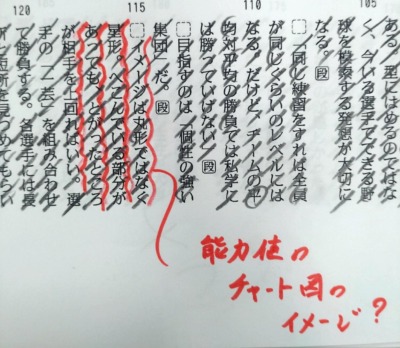 105
ある。型にはめるのではな
く、今いる選手でできる野
球を模索する発想が大切に
なる。段
110
「同じ練習をすれば全員
が同じくらいのレベルには
なる。だけど、チームの平
均対平均の勝負では私学に
は勝っていけない」段
目指すのは「個性の強い
115
集団」だ。段
イメージは丸形ではなく
星形。へこんでいる部分が
あっても、とがったところ
が相手を上回ればいい。選
120
手の「一芸」を組み合わせ
て勝負する。各選手には長
所と短所を見つめてもらい
能力値の
チャート図の
イメージ?